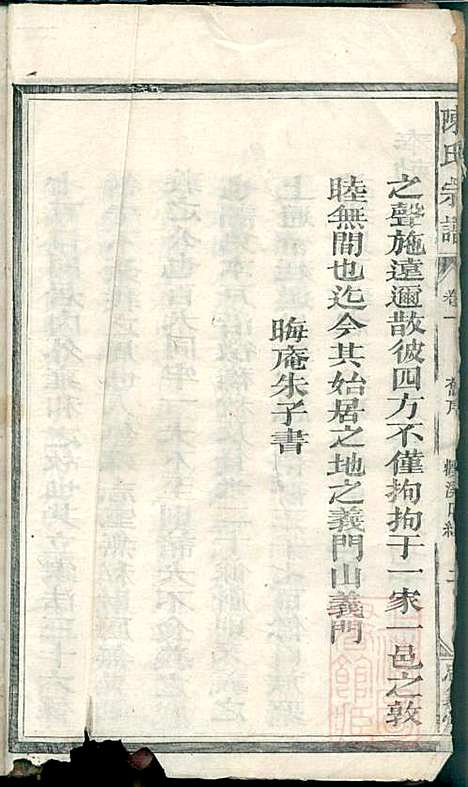 陳氏宗譜 卷一
之聲施遠邇散彼四方不僅拘拘于一家一邑之敦
睦無間也迄今其始居之地之義門山義門
晦庵朱子書